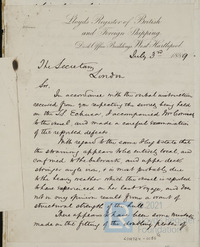 Lloyds Register of British
and Foreign Shipping
Dock Office Buildings West Hartlepool
July 3rd 1889
The Secretary
London
Sir,
In accordance with the verbal instructions
received from you respecting the survey being held
on the SS I accompanied Mr
to the vessel and made a careful examination
of the reported defects.
With regard to the same I beg to state that
the straining appears to be entirely local, and
confined to the bulwarks, and upper deck
stringer angle iron, & is most probably due
to the heavy weather which the vessel is reported
to have experienced on her last voyage, and does
not in my opinion result from a want of
structural strength of the hull.
There appears to have been some mistake
made in the fitting of the doubling plates of